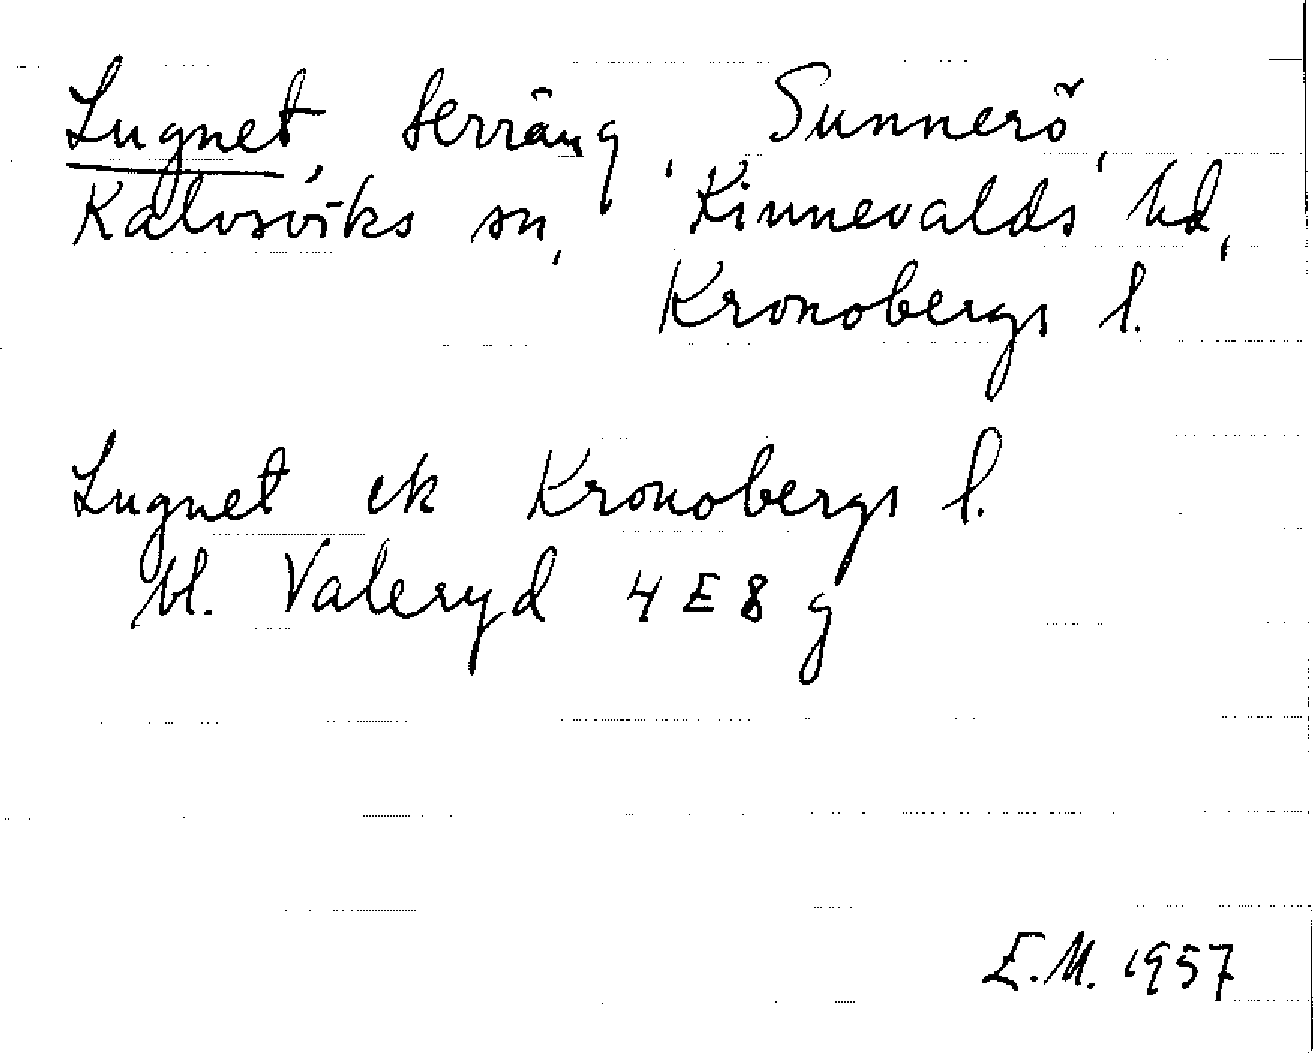 Lugnet, terräng, Sunnerö,
Kalvsviks sn, Kinnevalds hd,
Kronobergs l.
Lugnet ek Kronobergs l.
bl. Valeryd 4E8g
E.M. 1957